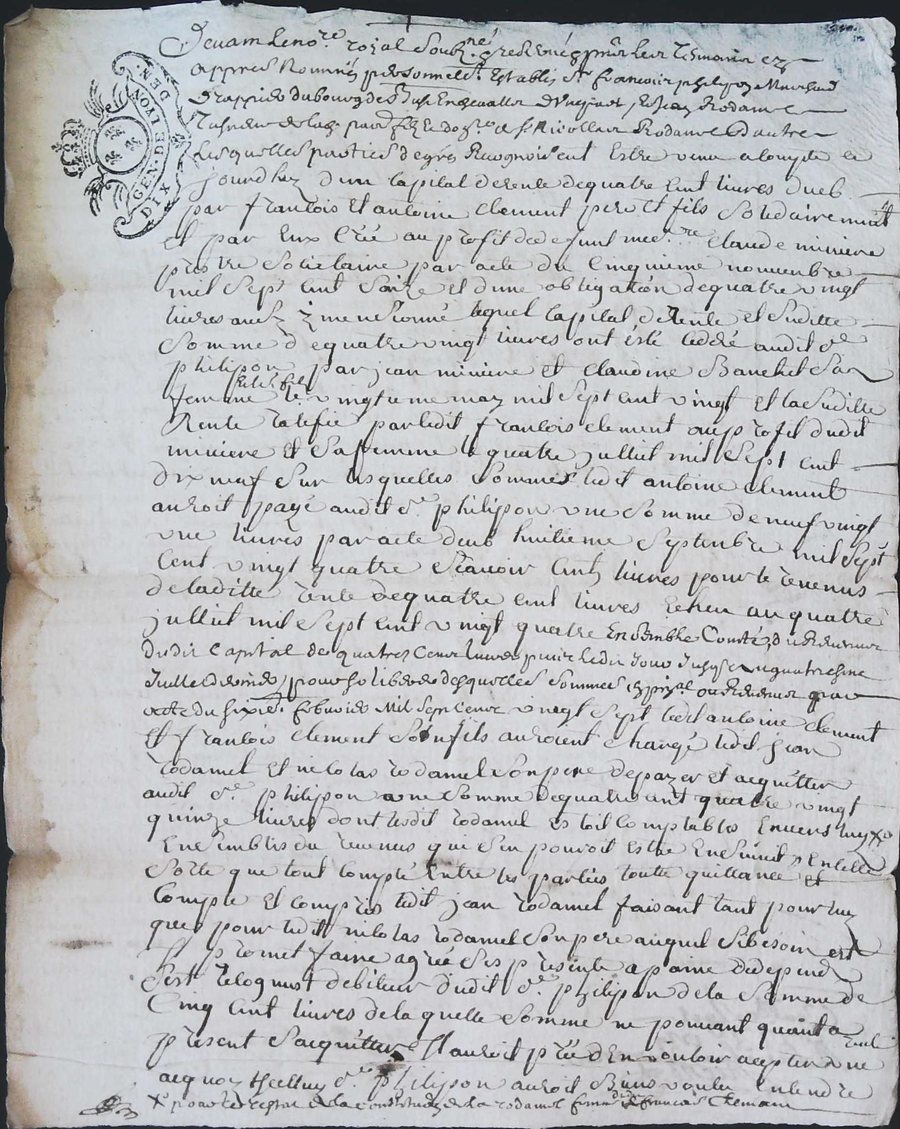 GEN. DE LYON
DIX DEN.
royal
appres només personnel. establis Sr francois philipon Marchand
drappier du bourg
Rodamel d'autre
Lesquelles parties de gré Recognoissent Estre venu a Compte ce
jourdhuy d'un Capital de rente de quatre Cent livres dueb
par francois Et antoine Clement pere et fils Solidairement
Et par Eux Créé au profit de defunt Claude miniere
prestre Societaire par acte du Cinquieme novembre
mil Sept cent Saize et d'une obligation de quatre vingt
livres aussy y mensionné lequel Capital de Rente et Suditte
Somme de quatre vingt livres ont ésté Ceddé audit Sr
philipon par jean miniere et Claudine Banchet Sa
femme le vingtieme may mil Sept cent vingt et la Suditte
Rente ratefiée par ledit francois Clement au profit dudit
miniere et Sa femme le quatre julliet mil Sept cent
dix neuf Sur lesquelles Sommes ledit antoine Clement
auroit payé audit Sr philipon une Somme de neuf vingt
une livres par acte du huitieme Septenbre mil Sept
Cent vingt quatre Scavoir Cent livres pour le revenus
de laditte rente de quatre cent livres echeu au quatre
julliet mil Sept cent vingt quatre Ensemble
dudit Capital de quatres Cent livres
Juillet dernier, pour se liberer desquelles Sommes
acte du fevrier Mil Sept Cent vingt Sept ledit antoine Clement
Et francois Clement Son fils auroient Chargé ledit jean
rodamel Et nicolas rodamel Son pere de payer Et acquitter
audit Sr philipon une Somme de quatre cent quatre vingt
quinze livres dont lesdit rodamel Comptables Envers luy X
Ensembles du revenus qui S'en pouroit Estre Ensuivit, En telle
Sorte que tout Compté Entre les parties toute quittance Et
Compte Et Compris ledit jean rodamel faisant tant pour luy
que pour ledit nicolas rodamel Son pere auquel Si besoin est
Il promet faire agreé Ses presente a paine de depend
S'est recognust debiteur dudit Sr philipon de la Somme de
Cinq Cent livres de laquelle Somme ne pouvant quant a
present S'acquitter Il auroit prié d'En vouloir accepter
acquoy Icelluy Sr philipon auroit Bien voulu Entendre
X de la rodamel francois Clement